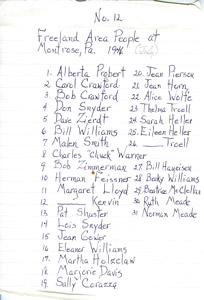 No. 12
Freeland Area People at
Montrose, Pa. 1946 (July)
1. Alberta Probert
2. Carol Crawford
3. Bob Crawford
4. Don Snyder
5. Dave Zierdt
6 Bill Williams
7 Malen Smith
8 Charles "Chuck" Warner
9 Bob Zimmerman
10 Herman Feissner
11 Margaret Lloyd
12 Kenvin
13 Pat Shuster
14 Lois Snyder
15 Jean Gower
16 Eleanor Williams
17. Martha Holzclaw
18 Marjorie Davis
19. Sally Corazza
20. Jean Pierson
21 Jean Horn
22 Alice Wolfe
23 Thelma Troell
24 Sarah Heller
25 Eileen Heller
26. Troell
27 Bill Hangeisen
28 Becky Williams
29. Beatrice McClellan
30 Ruth Meade
31 Norman Meade